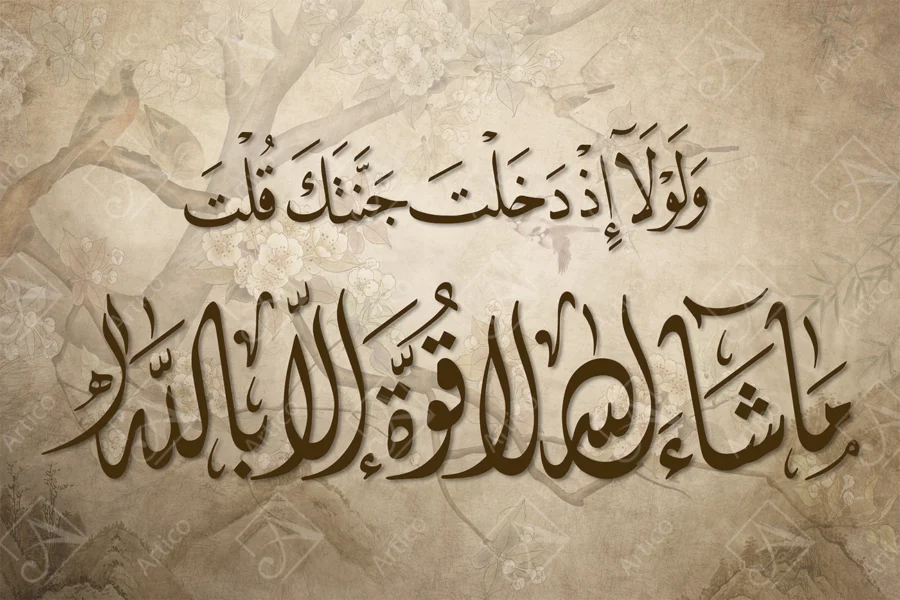 وَلَوْلَآ إِذْ دَخَلْتَ جَنَّتَكَ قُلْتَ
مَا شَآءَ اللهُ لَا قُوَّةَ إِلَّا بِاللَّهِ
Artico